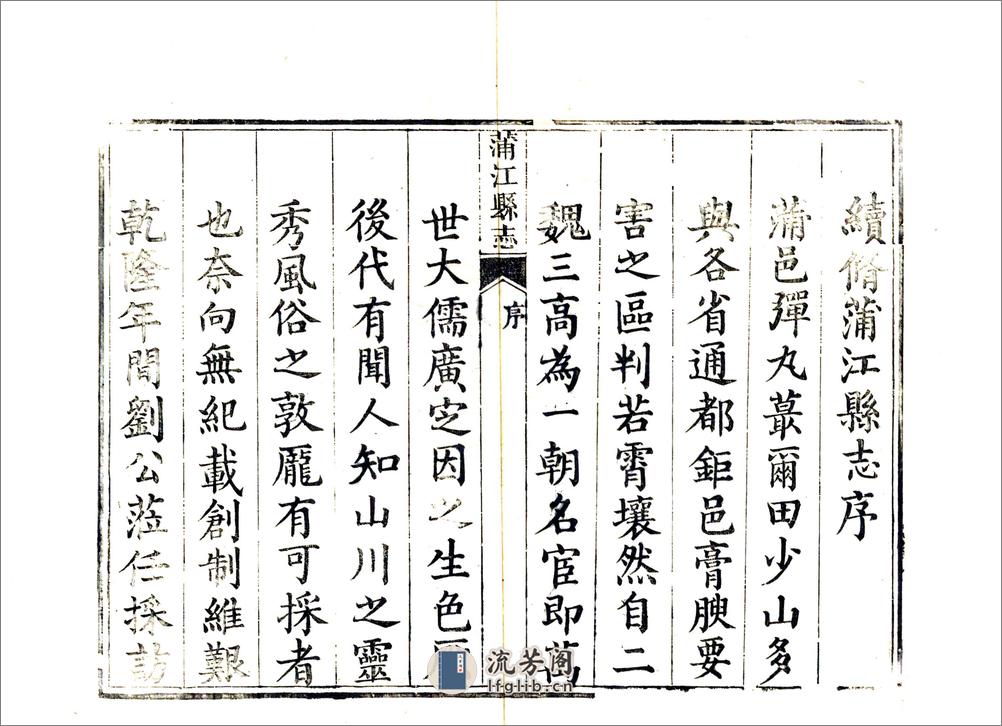 續脩蒲江縣志序
蒲邑彈丸蕞爾田少山多
與各省通都鉅邑膏腴要
害之區判若霄壤然自二
魏三高為一朝名宦即萬
蒲江縣志
序
世大儒廣定因之生色
後代有聞人知山川之靈
秀風俗之敦龐有可採者
也奈向無紀載創制維艱
乾隆年間劉公蒞任採訪
流芳阁
lfglib.cn